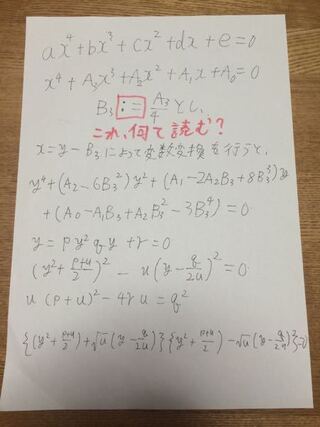 ax⁴+bx³+cx²+dx+e=0
x⁴+A₃x³+A₂x²+A₁x+A₀=0
B₃ := A₃/4 とし、
これ、何て読む?
x=y-B₃によって変数変換を行うと、
y⁴+(A₂-6B₃²)y²+(A₁-2A₂B₃+8B₃³)y
+(A₀-A₁B₃+A₂B₃²-3B₃⁴)=0
y=py²qy+r=0
(y²+(p+u)/2)²-u(y-q/2u)²=0
u(p+u)²-4ru=q²
{(y²+(p+u)/2)+√u(y-q/2u)}{(y²+(p+u)/2)-√u(y-q/2u)}=0